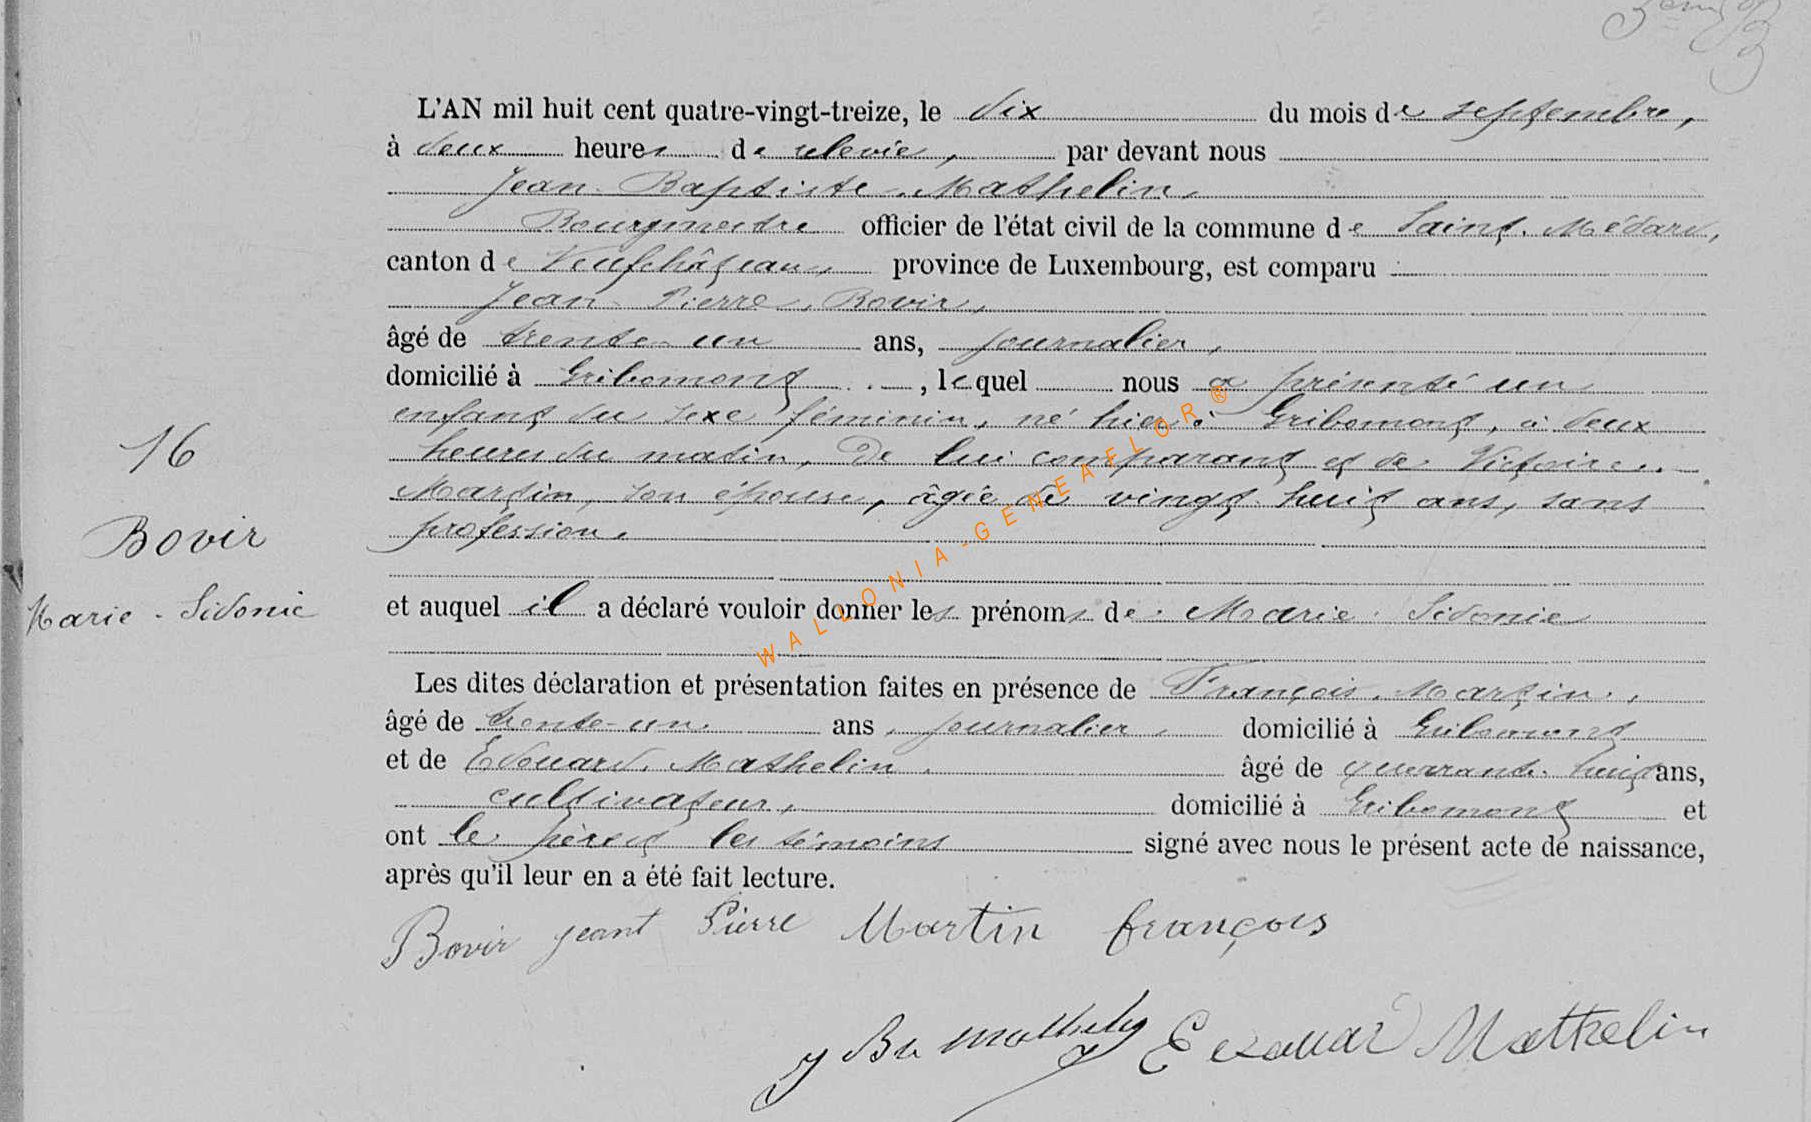 L'AN mil huit cent quatre-vingt-treize, le dix du mois de septembre,
à deux heures de relevée, par devant nous
Jean-Baptiste Mathelin,
Bourgmestre officier de l'état civil de la commune de Saint-Médard,
canton de Neufchâteau, province de Luxembourg, est comparu
Jean-Pierre Bovir,
âgé de trente-un ans, journalier,
domicilié à Gribomont, lequel nous a présenté un
enfant du sexe féminin, né hier à Gribomont, à deux
heures du matin, de lui comparant et de Victoire
Martin, son épouse, âgée de vingt-huit ans, sans
profession.
16
Bovir
Marie-Sidonie
et auquel il a déclaré vouloir donner les prénoms de Marie-Sidonie
Les dites déclaration et présentation faites en présence de François Martin,
âgé de trente-un ans, journalier, domicilié à Gribomont
et de Edouard Mathelin. âgé de quarante-huit ans,
cultivateur, domicilié à Gribomont et
ont le père et les témoins signé avec nous le présent acte de naissance,
après qu'il leur en a été fait lecture.
Bovir jeant Pierre Martin françois
J Bte Mathelin Edouard Mathelin
WALLONIA-GENEAFLOR®